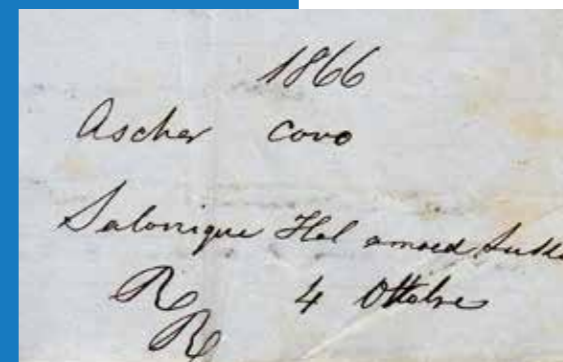 1866
Ascher Covo
Salonique Hol amoed
R 4 Ottobre
R